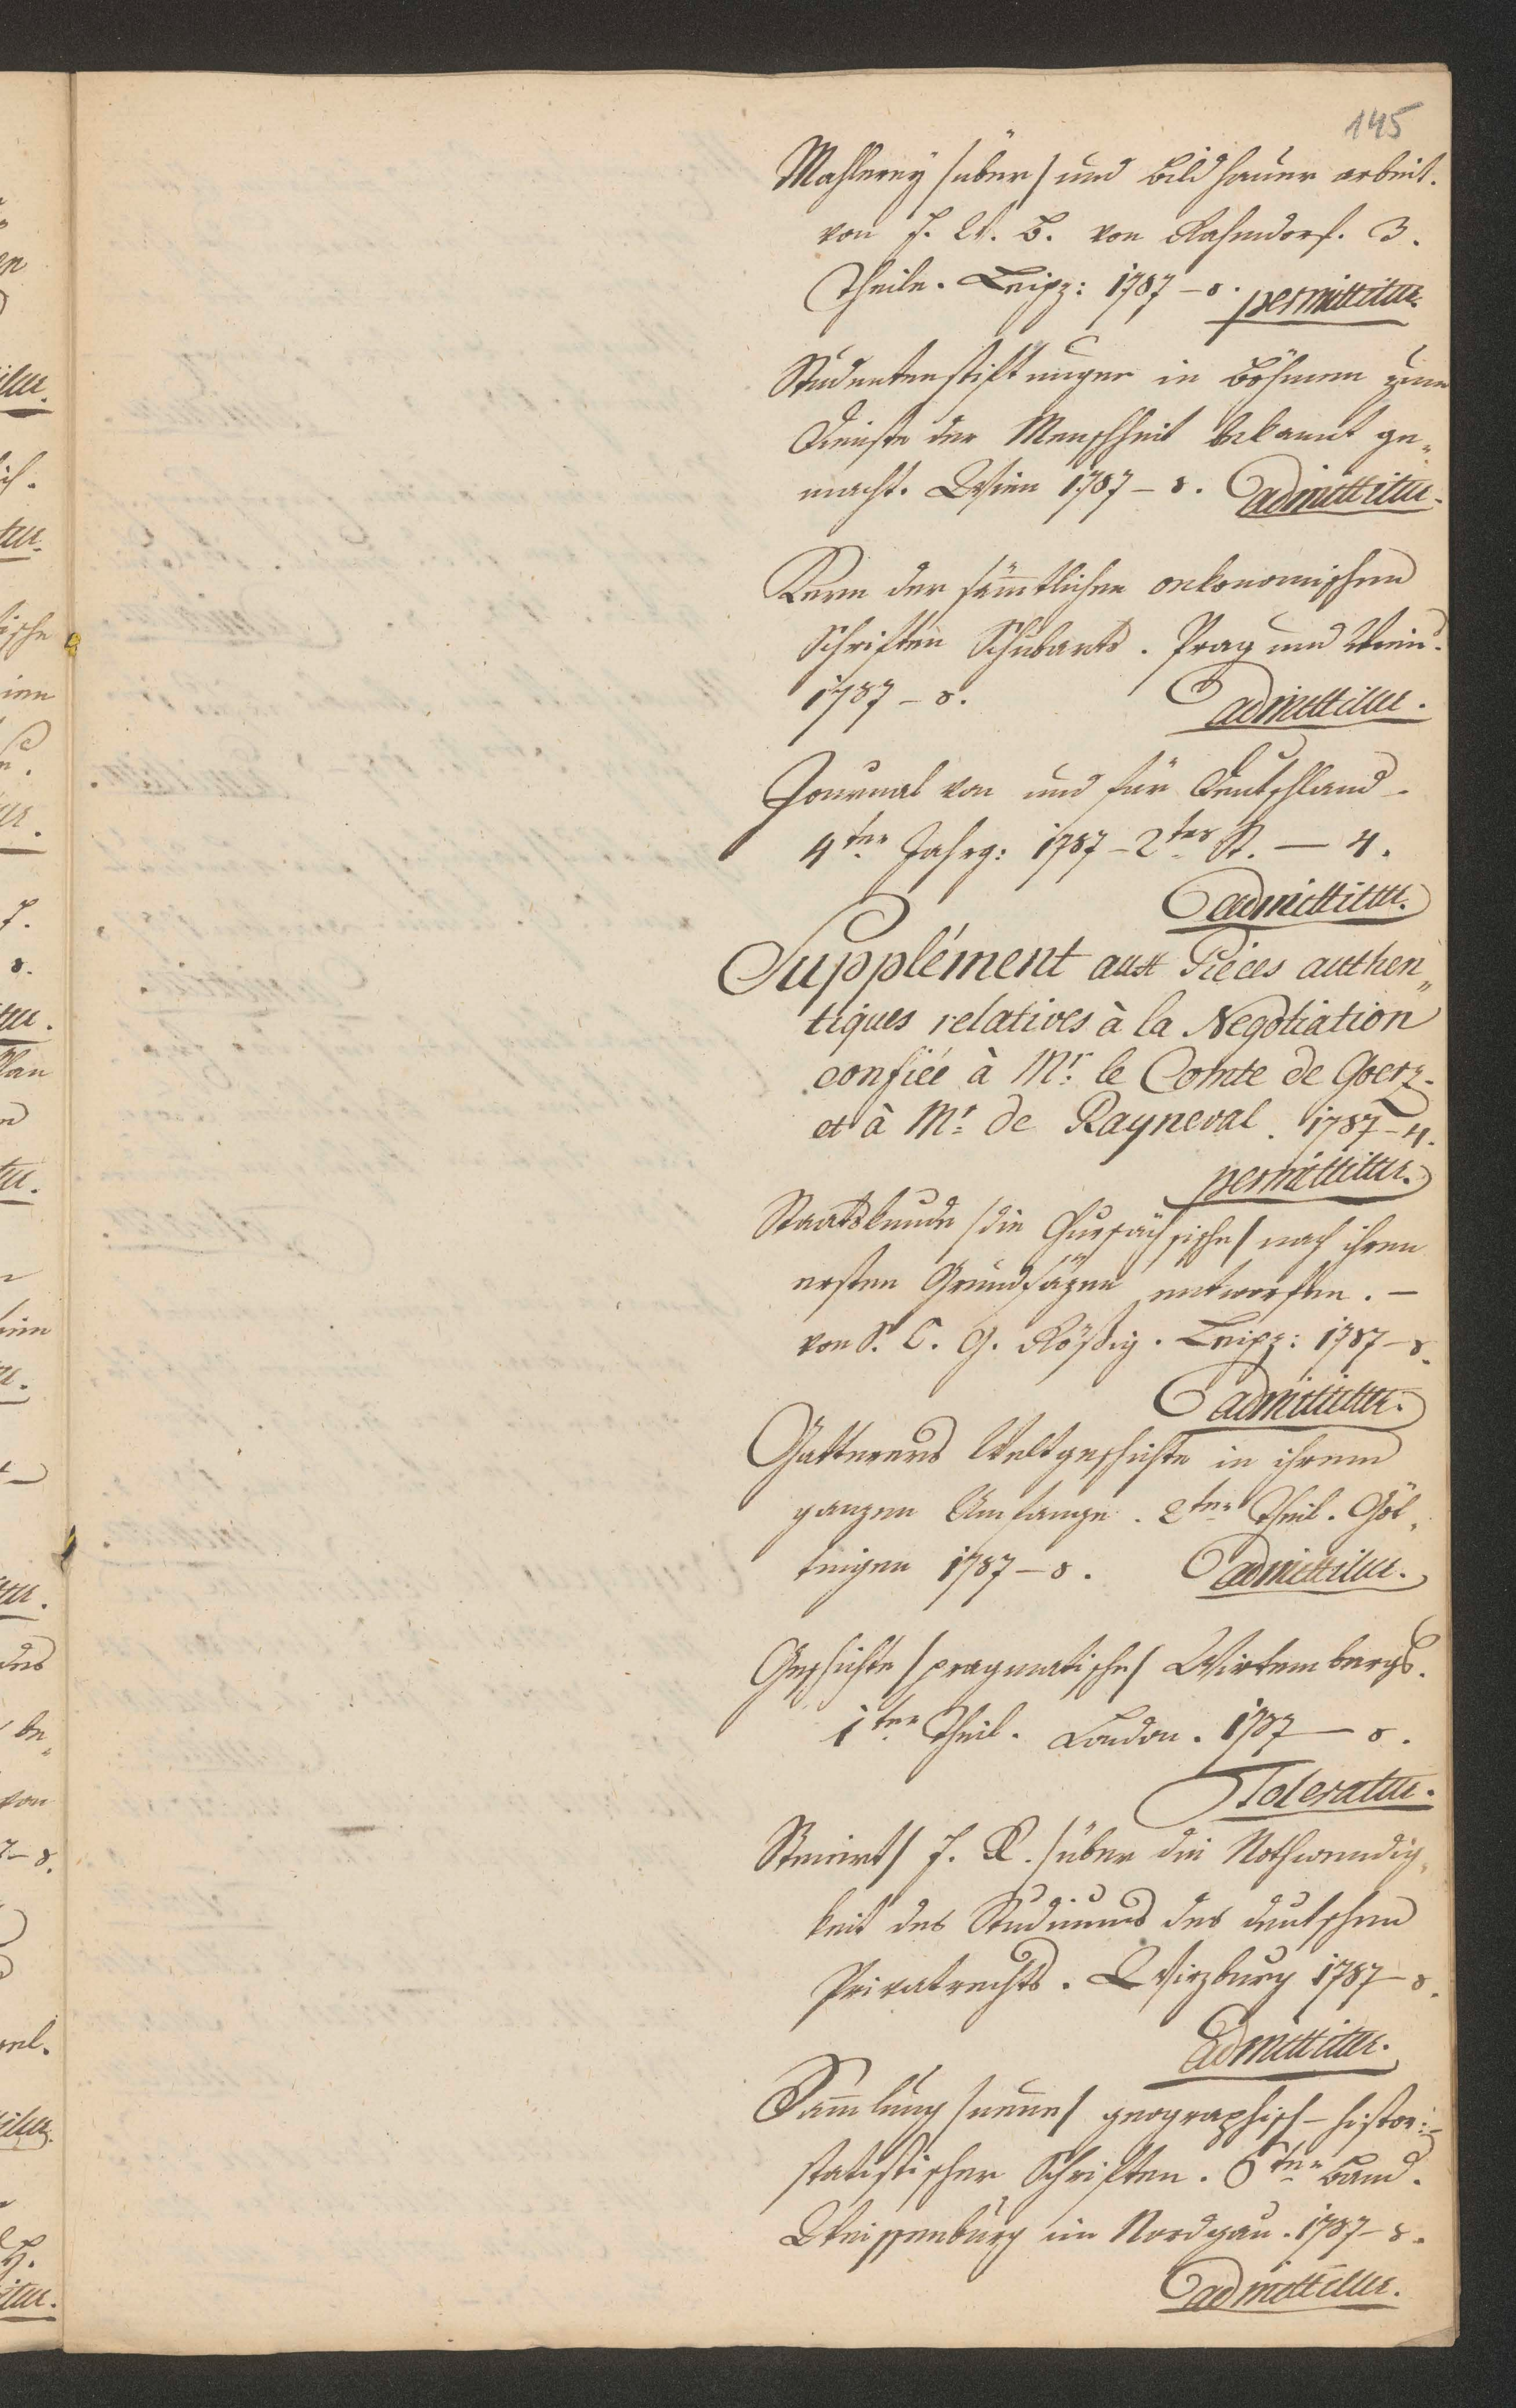 145
Mahlerey /über/ und Bildhauer arbeit.
von F. E. B. von Ramdorf. 3.
Theile. Leipz: 1787 – 8. permittitur.
Studentenstiftungen in Böhmen zum
Dienste der Menschheit bekannt ge„
macht. Wien 1787 – 8. admittitur.
Kern der sämtlichen oekonomischen
Schriften Schubarts. Prag und Wien.
1787 – 8. admittitur.
Journal von und für Deutschland.
4ter Jahrg: 1787 – 2tes St. – 4.
admittitur.
Supplément aux Piéces authen„
tiques relatives à la Negotiation
confiée à Mr. le Comte de Goerz.
et à Mr. de Rayneval. 1787 – 4.
permittitur.
Staatskunde /die Chursächsische/ nach ihren
ersten Grundsäzen entworfen. –
von D. C. G. Rößig. Leipz: 1787 – 8.
admittitur.
Gatterers Weltgeschichte in ihrem
ganzen Umfange. 2ter Theil. Göt„
tingen 1787 – 8. admittitur.
Geschichte /pragmatische/ Wirtembergs.
1ter Theil. London. 1787 – 8.
Toleratur.
J. R. /über die Nothwendig„
keit des Studiums des deutschen
Privatrechts. Wirzburg 1787 – 8.
admittitur.
Samlung /neue/ geographisch – histor: –
statistischer Schriften. 6ter Band.
Weissenburg im Nordgau. 1787 – 8.
admittitur.